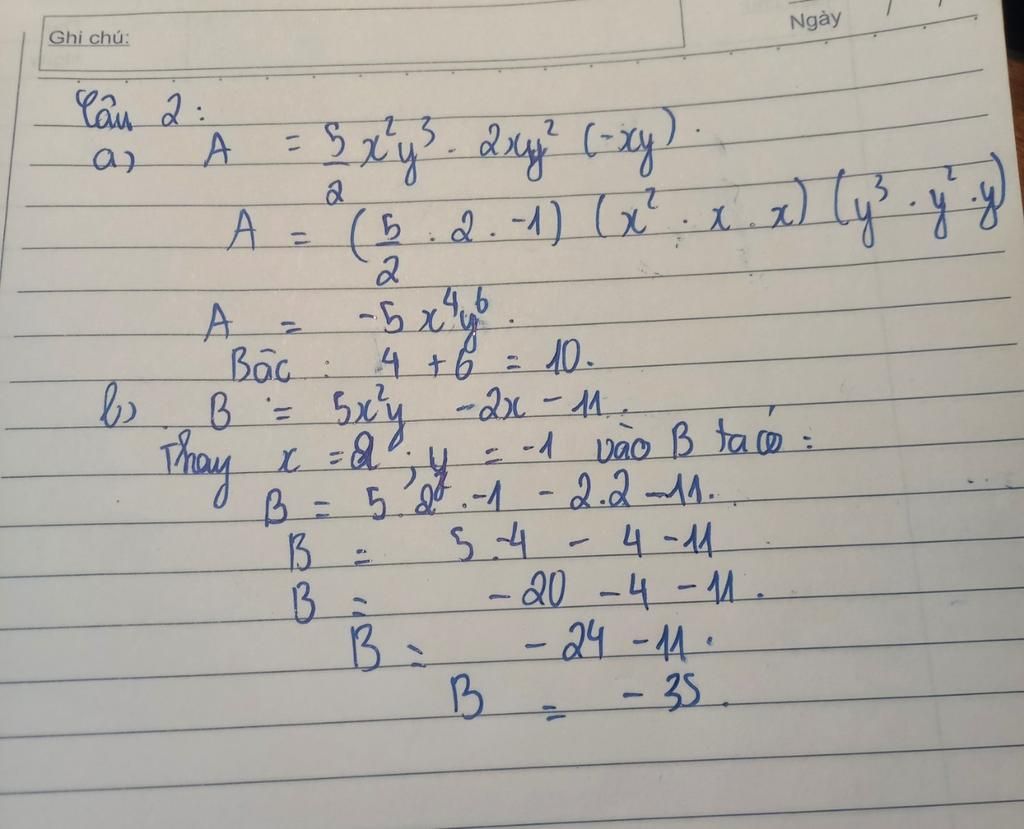 Ghi chú:
Ngày / /
Câu 2:
a) A = 5/2 x²y³ . 2xy² (-xy).
A = (5/2 . 2 . -1) (x² . x . x) (y³ . y² . y)
A = -5x⁴y⁶.
Bâc : 4 + 6 = 10.
b) B = 5x²y - 2x - 11.
Thay x = 2 ; y = -1 vào B ta có :
B = 5.2² . -1 - 2.2 - 11.
B = 5.-4 - 4 - 11
B = - 20 - 4 - 11.
B = - 24 - 11.
B = - 35.